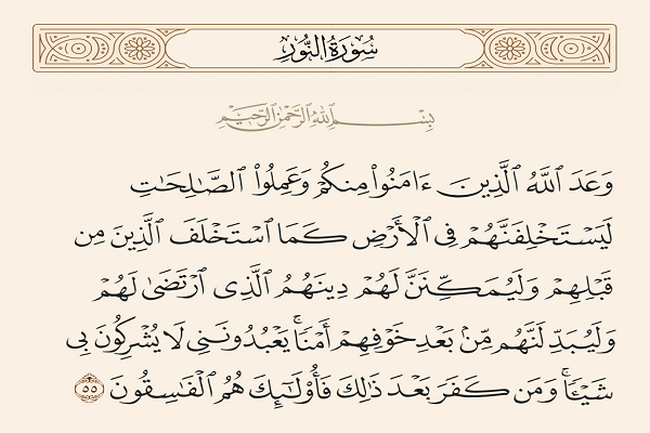 سُورَةُ النُّورِ
بِسْمِ ٱللَّهِ ٱلرَّحْمَٰنِ ٱلرَّحِيمِ
وَعَدَ ٱللَّهُ ٱلَّذِينَ ءَامَنُوا۟ مِنكُمْ وَعَمِلُوا۟ ٱلصَّٰلِحَٰتِ
لَيَسْتَخْلِفَنَّهُمْ فِى ٱلْأَرْضِ كَمَا ٱسْتَخْلَفَ ٱلَّذِينَ مِن
قَبْلِهِمْ وَلَيُمَكِّنَنَّ لَهُمْ دِينَهُمُ ٱلَّذِى ٱرْتَضَىٰ لَهُمْ
وَلَيُبَدِّلَنَّهُم مِّنۢ بَعْدِ خَوْفِهِمْ أَمْنًا ۚ يَعْبُدُونَنِى لَا يُشْرِكُونَ بِى
شَيْـًٔا ۚ وَمَن كَفَرَ بَعْدَ ذَٰلِكَ فَأُو۟لَٰٓئِكَ هُمُ ٱلْفَٰسِقُونَ ٥٥